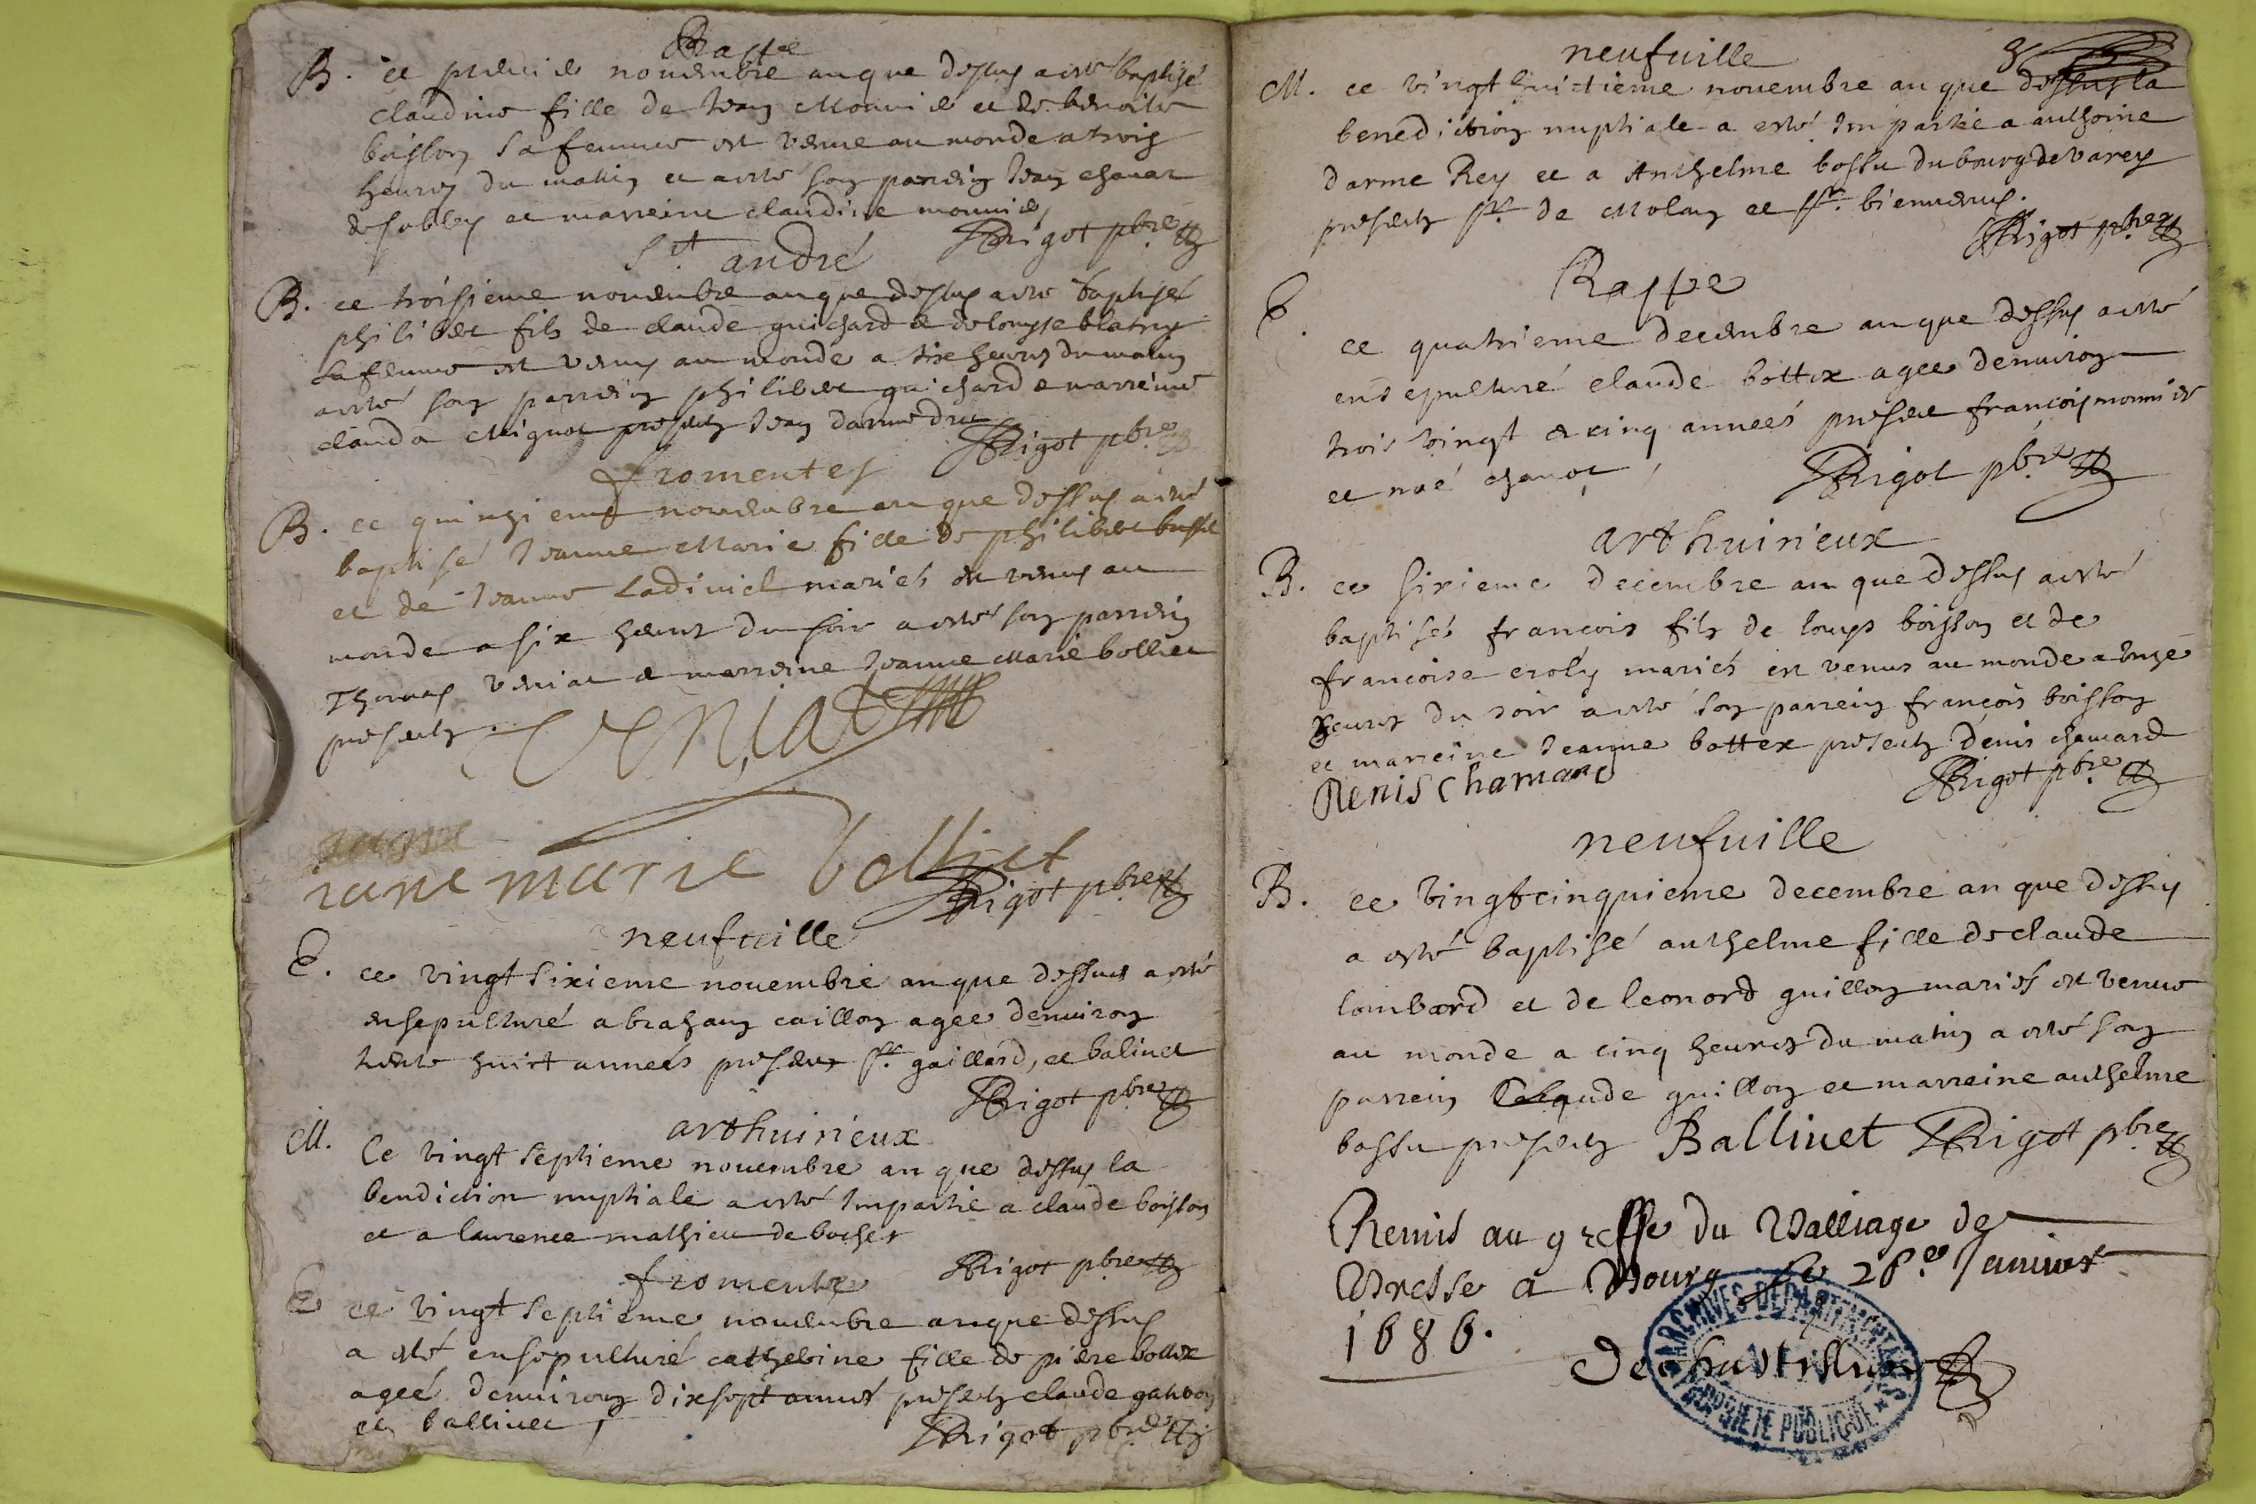 Rappe
B. ce premier novembre an que dessus a esté baptisé
claudine fille de Jean Monnier et de benoite
boisson sa femme est venue au monde a trois
heures du matin et a esté son parrein Jean chanat
et marreine claudine monnier
Rigot pbre
St andré
B. ce troisieme novembre an que dessus a esté baptisé
philibert fils de claude guichard et de louyse
sa femme est venus au monde a six heures du matin
a esté son parrein philibert guichard et marreine
clauda Mignot presents Jean darmedru
Rigot pbre
fromentes
B. ce quinzieme novembre an que dessus a esté
baptisé Jeanne Marie fille de philibert buffet
et de Jeanne Ladiniel mariés est venus au
monde a six heures du soir a esté son parrein
Thomas Veniat et marreine Jeanne Marie bolliet
presents.
VENIAT
iane marie bolliet
Rigot pbre
neufuille
E. ce vingt sixieme nouembre an que dessus a esté
ensepulturé abraham caillon agee denuiron
trente huict annees presents sr. gaillard, et balinet
Rigot pbre
arthuirieux
M. Ce vingt septieme nouembre an que dessus la
bendiction nuptiale a esté Impartie a claude boisson
et a laurence mathieu de
Rigot pbre
fromente
E ce vingt septieme nouembre an que dessus
a esté ensepulturé catherine fille de piere bottex
ageé denuiron dixsept années presents claude
et ballinet,
Rigot pbre
neufuille
M. ce vingt huictieme nouembre an que dessus la
benediction nuptiale a esté Impartie a anthoine
darme Rey et a Anthelme bossu du bourg de varey
presents sr. de Molan et sr. bienuenus.
Rigot pbre
Rappe
E. ce quatrieme decembre an que dessus a esté
ensepulturé claude bottex agee denuiron
trois vingt et cinq annees present francois monnier
et noé chanat,
Rigot pbre
arthuirieux
B. ce sixieme decembre an que dessus a esté
baptisés francois fils de louys boisson et de
francoise croly mariés est venus au monde a onze
heures du soir a esté son parrein françois boisson
et marreine Jeanne bottex presents denis chamard
Denis Chamard
Rigot pbre
neufuille
B. ce vingtcinquieme decembre an que dessus
a esté baptisé anthelme fille de claude
lombard et de leonord guillon mariés est venue
au monde a cinq heures du matin a esté son
parrein Claude guillon et marreine anthelme
bossu presents Ballinet Rigot pbre
Remis au greffe du Balliage de
Bresse a Bourg le 28e Januier
1686.
ARCHIVES DEPARTEMENTALES
PROPRIETE PUBLIQUE